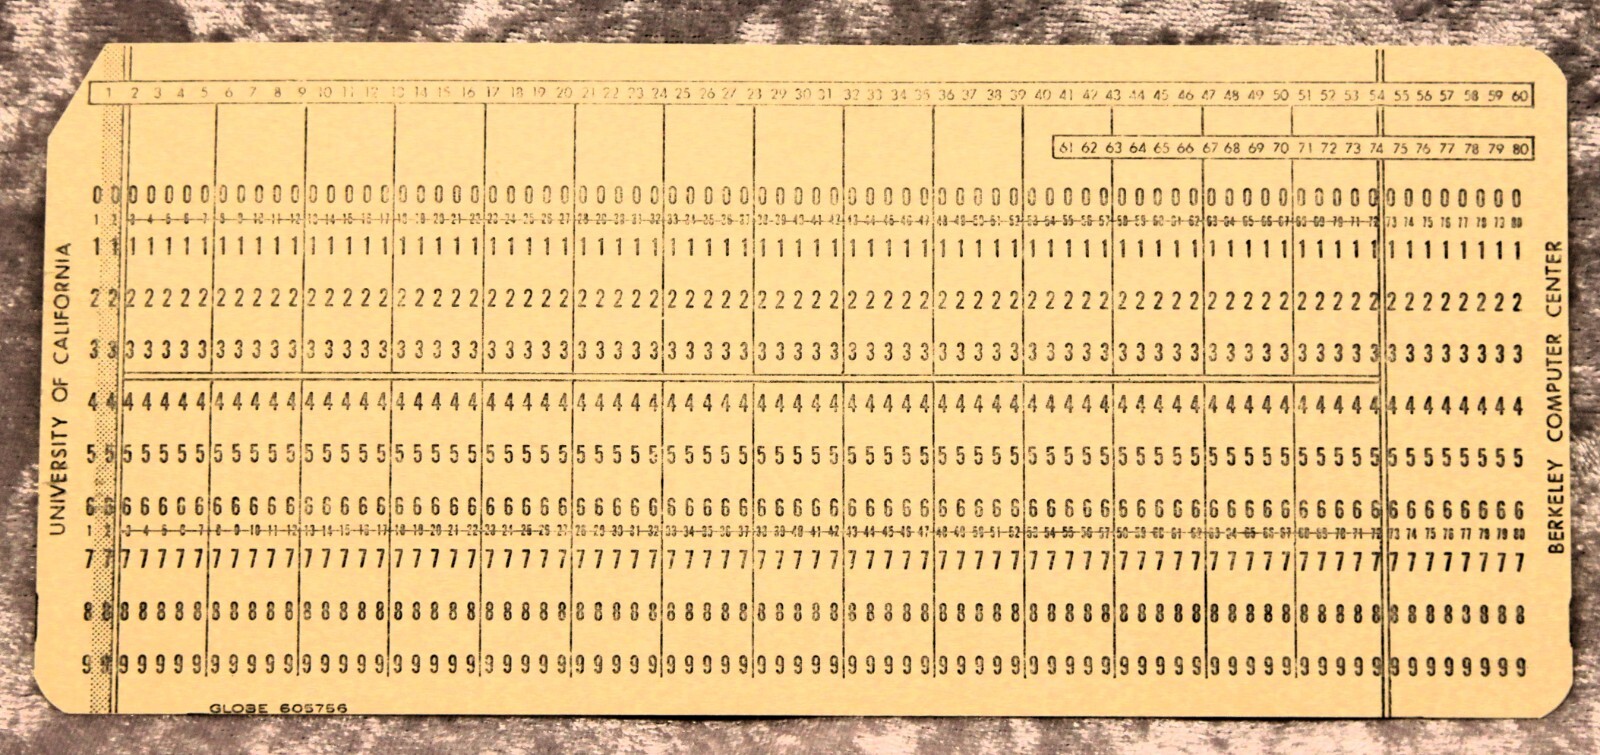 1 2 3 4 5 6 7 8 9 10 11 12 13 14 15 16 17 18 19 20 21 22 23 24 25 26 27 28 29 30 31 32 33 34 35 36 37 38 39 40 41 42 43 44 45 46 47 48 49 50 51 52 53 54 55 56 57 58 59 60
61 62 63 64 65 66 67 68 69 70 71 72 73 74 75 76 77 78 79 80
00 00000 00000 00000 00000 00000 00000 00000 00000 00000 00000 00000 00000 00000 00000 00000000
1 2 3-4-5-6-7 8-9-10-11-12 13-14-15-16-17 18-19-20-21-22 23-24-25-26-27 28-29-30-31-32 33-34-35-36-37 38-39-40-41-42 43-44-45-46-47 48-49-50-51-52 53-54-55-56-57 58-59-60-61-62 63-64-65-66-67 68-69-70-71-72 73 74 75 76 77 78 79 80
11 11111 11111 11111 11111 11111 11111 11111 11111 11111 11111 11111 11111 11111 11111 11111111
22 22222 22222 22222 22222 22222 22222 22222 22222 22222 22222 22222 22222 22222 22222 22222222
33 33333 33333 33333 33333 33333 33333 33333 33333 33333 33333 33333 33333 33333 33333 33333333
44 44444 44444 44444 44444 44444 44444 44444 44444 44444 44444 44444 44444 44444 44444 44444444
55 55555 55555 55555 55555 55555 55555 55555 55555 55555 55555 55555 55555 55555 55555 55555555
66 66666 66666 66666 66666 66666 66666 66666 66666 66666 66666 66666 66666 66666 66666 66666666
1 3-4-5-6-7 8-9-10-11-12 13-14-15-16-17 18-19-20-21-22 23-24-25-26-27 28-29-30-31-32 33-34-35-36-37 38-39-40-41-42 43-44-45-46-47 48-49-50-51-52 53-54-55-56-57 58-59-60-61-62 63-64-65-66-67 68-69-70-71-72 73 74 75 76 77 78 79 80
77 77777 77777 77777 77777 77777 77777 77777 77777 77777 77777 77777 77777 77777 77777 77777777
88 88888 88888 88888 88888 88888 88888 88888 88888 88888 88888 88888 88888 88888 88888 88888888
99 99999 99999 99999 99999 99999 99999 99999 99999 99999 99999 99999 99999 99999 99999 99999999
GLOBE 605756
UNIVERSITY OF CALIFORNIA
BERKELEY COMPUTER CENTER